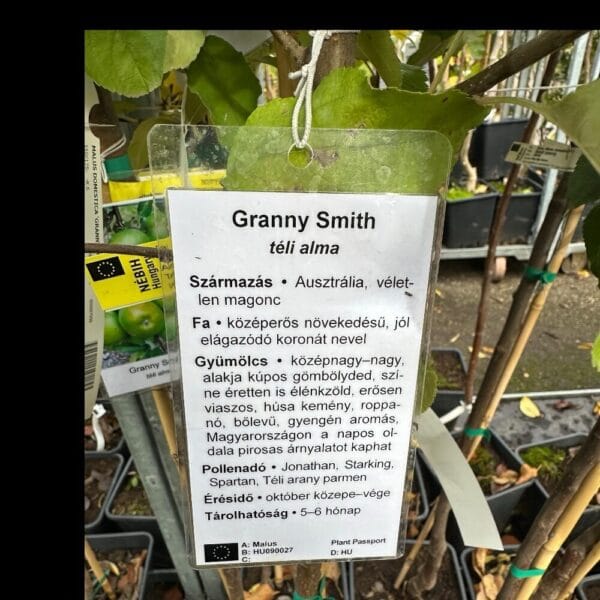 Granny Smith
téli alma
Származás • Ausztrália, vélet-
len magonc
Fa • középerős növekedésű, jól
elágazódó koronát nevel
Gyümölcs • középnagy–nagy,
alakja kúpos gömbölyded, szí-
ne éretten is élénkzöld, erősen
viaszos, húsa kemény, roppa-
nó, bőlevű, gyengén aromás,
Magyarországon a napos ol-
dala pirosas árnyalatot kaphat
Pollenadó • Jonathan, Starking,
Spartan, Téli arany parmen
Érésidő • október közepe–vége
Tárolhatóság • 5–6 hónap
A: Malus
Plant Passport
B: HU090027
D: HU
C:
NÉBIH
MALUS DOMESTICA
Granny
téli